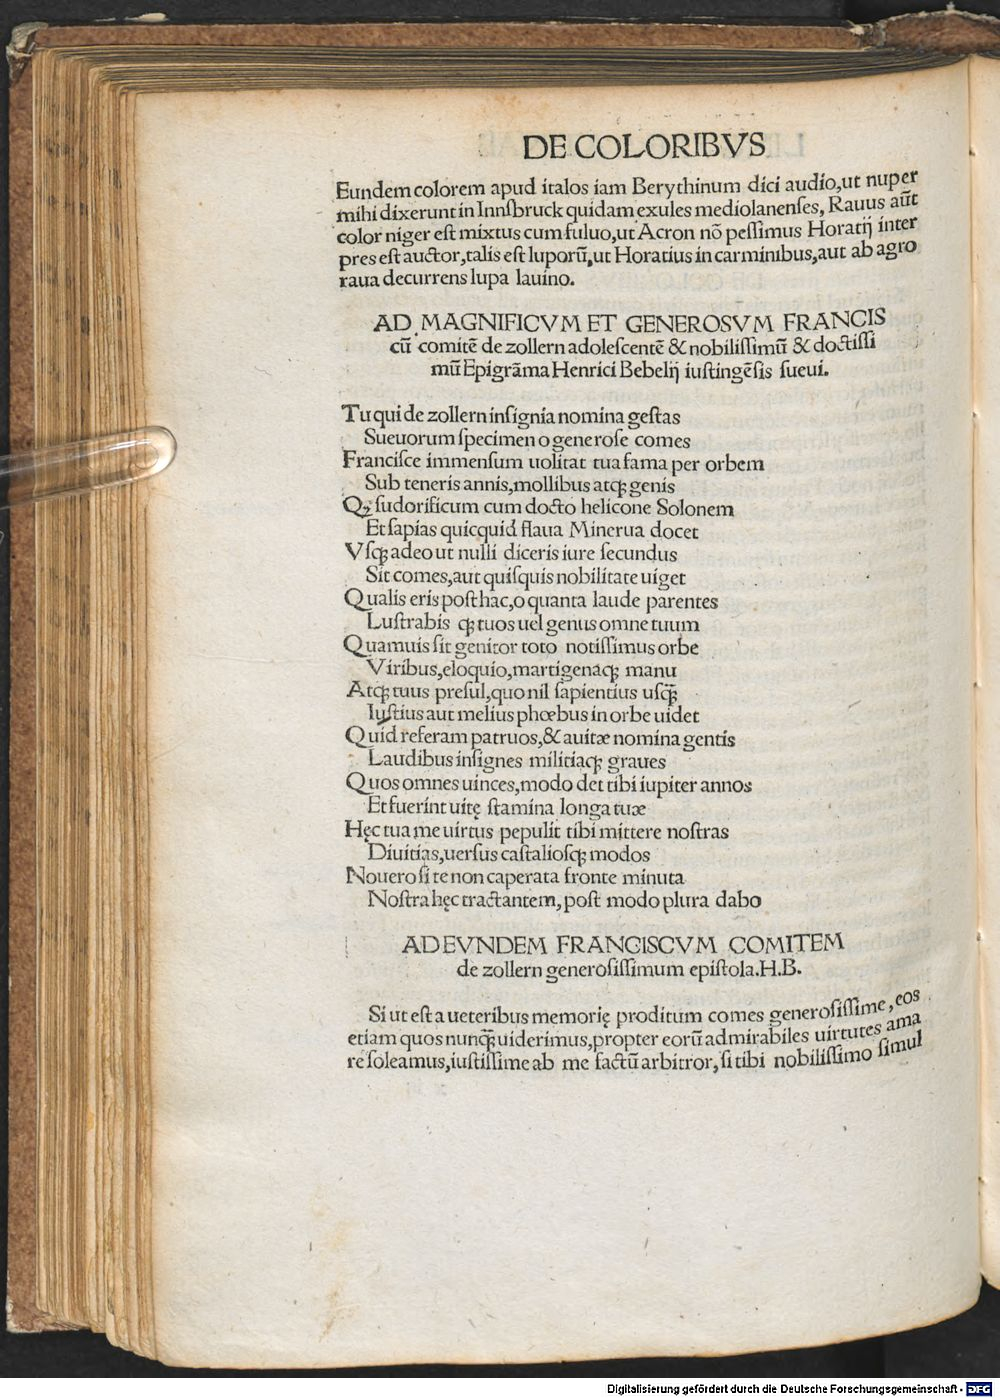 DE COLORIBVS
Eundem colorem apud italos iam Berythinum dici audio,ut nuper
mihi dixerunt in Innſbruck quidam exules mediolanenſes, Rauus aūt
color niger eſt mixtus cum fuluo,ut Acron nō peſſimus Horatij inter
pres eſt auctor,talis eſt luporū,ut Horatius in carminibus,aut ab agro
raua decurrens lupa lauino.
AD MAGNIFICVM ET GENEROSVM FRANCIS
cū comitē de zollern adoleſcentē & nobiliſſimū & doctiſſi
mū Epigrāma Henrici Bebelij iuſtingēſis ſueui.
Tu qui de zollern inſignia nomina geſtas
Sueuorum ſpecimen o generoſe comes
Franciſce immenſum uolitat tua fama per orbem
Sub teneris annis,mollibus atqꝫ genis
Qꝫ ſudorificum cum docto helicone Solonem
Et ſapias quicquid flaua Minerua docet
Vſqꝫ adeo ut nulli diceris iure ſecundus
Sit comes,aut quiſquis nobilitate uiget
Qualis eris poſthac,o quanta laude parentes
Luſtrabis qꝫ tuos uel genus omne tuum
Quamuis ſit genitor toto notiſſimus orbe
Viribus,eloquio,martigenaqꝫ manu
Atqꝫ tuus preſul,quo nil ſapientius uſqꝫ̄
Iuſtius aut melius phœbus in orbe uidet
Quid referam patruos,& auitæ nomina gentis
Laudibus inſignes militiaqꝫ graues
Quos omnes uinces,modo det tibi iupiter annos
Et fuerint uitę ſtamina longa tuæ
Hęc tua me uirtus pepulit tibi mittere noſtras
Diuitias,uerſus caſtalioſqꝫ modos
Nouero ſi te non caperata fronte minuta
Noſtra hęc tractantem,poſt modo plura dabo
AD EVNDEM FRANCISCVM COMITEM
de zollern generoſiſſimum epiſtola.H.B.
Si ut eſt a ueteribus memorię proditum comes generoſiſſime,eos
etiam quos nunqꝫ̄ uiderimus,propter eorū admirabiles uirtutes ama
re ſoleamus,iuſtiſſime ab me factū arbitror,ſi tibi nobiliſſimo ſimul
Digitalisierung gefördert durch die Deutsche Forschungsgemeinschaft - DFG